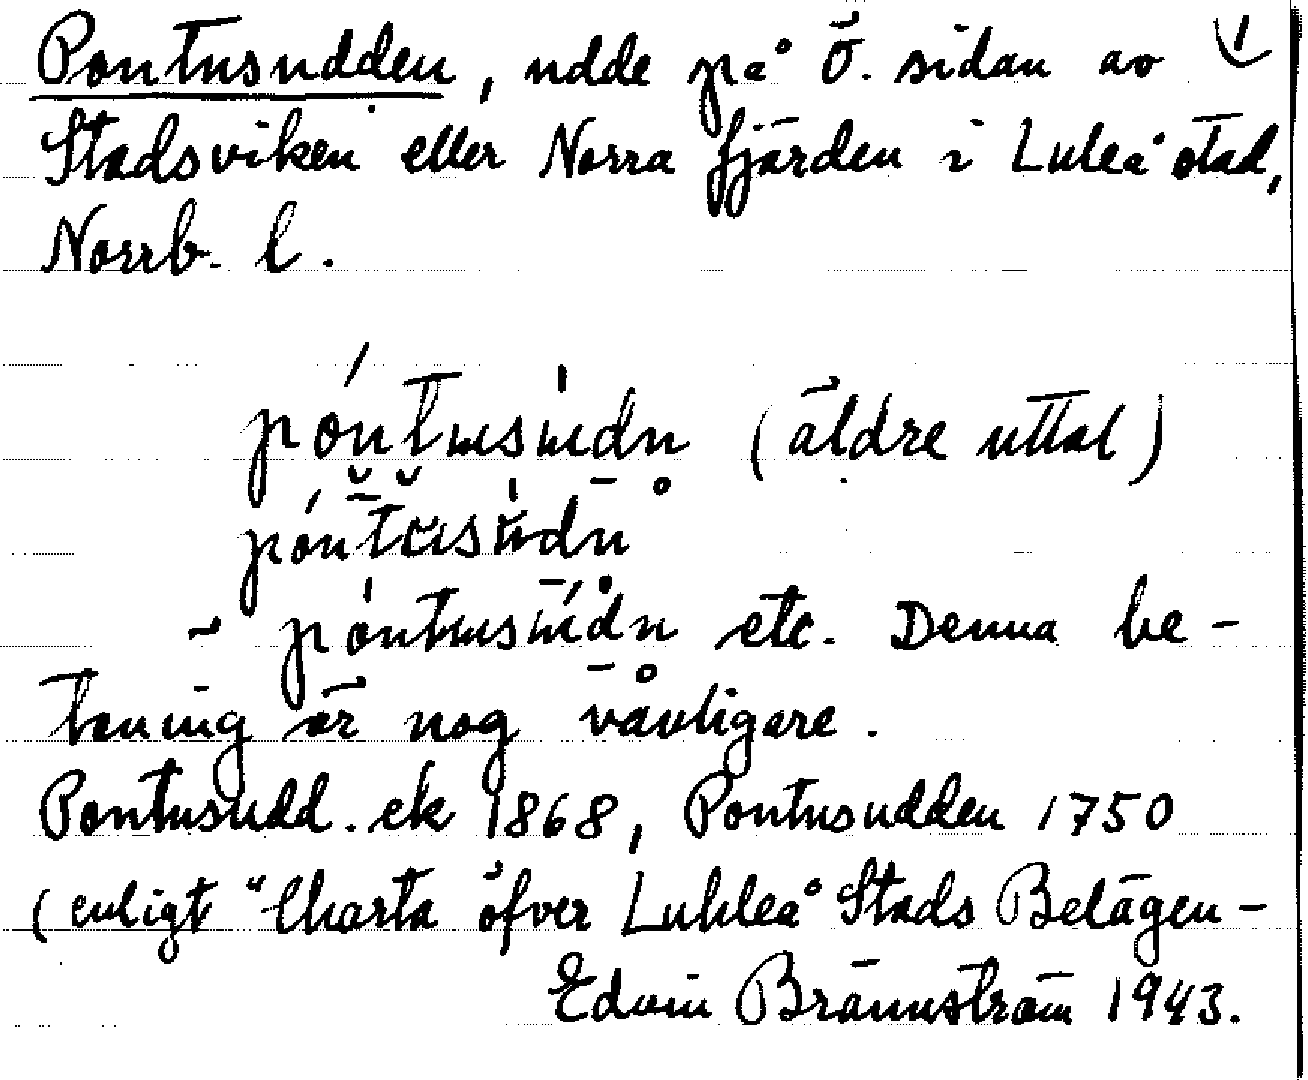 Pontusudden, udde på Ö. sidan av
Stadsviken eller Norra fjärden i Luleå stad,
Norrb. l.
(äldre uttal)
etc. Denna be-
toning är nog vanligare.
Pontusudd. ek 1868, Pontusudden 1750
(enligt "Charta öfver Luhleå Stads Belägen-
Edvin Brännström 1943.